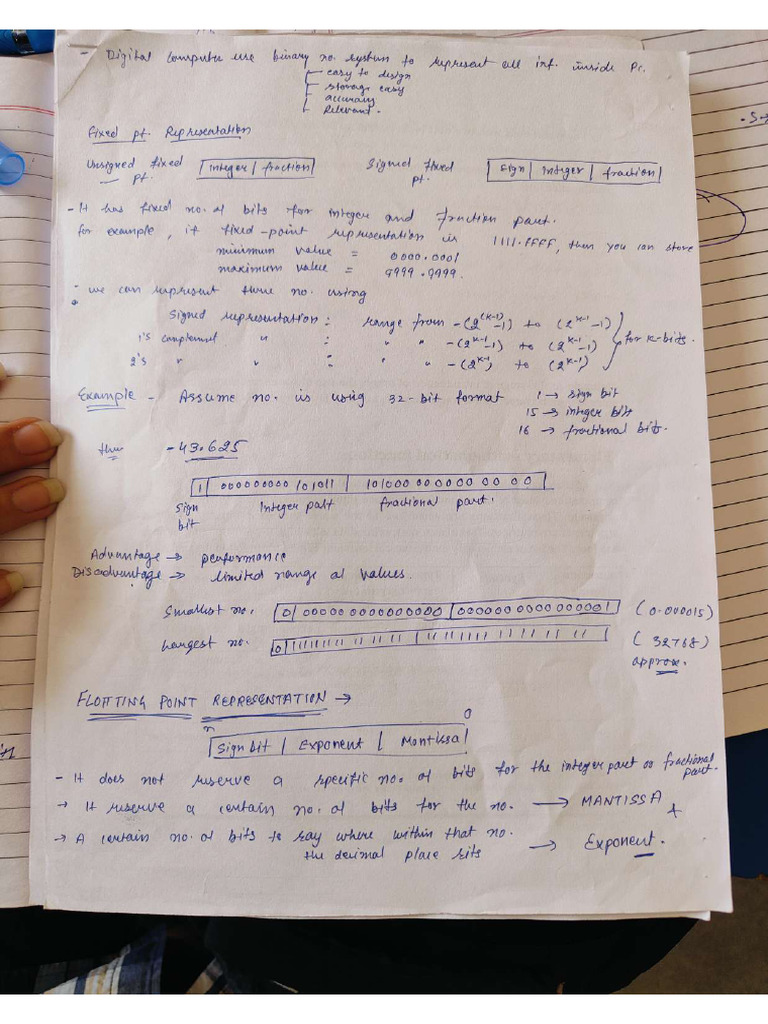 - Digital Computer use binary no. system to represent all inf. inside Pc.
easy to design
storage easy
accuracy
Relevant.
Fixed pt. Representation
Unsigned fixed pt. | integer | fraction |
Signed fixed pt. | Sign | integer | fraction |
- It has fixed no. of bits for integer and fraction part.
for example, if fixed-point representation is 1111.FFFF, then you can store
minimum value = 0000.0001
maximum value = 9999.9999.
: we can represent these no. using
Signed representation : range from -(2^(k-1)-1) to (2^k-1-1)
1's complement " : " " -(2^k-1-1) to (2^k-1-1) } for k-bits.
2's " " : " " -(2^k-1) to (2^k-1)
Example - Assume no. is using 32-bit format 1 → sign bit
15 → integer bit
16 → fractional bits.
thus -43.625
| 1 | 000000000 101011 | 101000 000 000 00 00 |
Sign bit Integer part fractional part.
Advantage → performance
Disadvantage → limited range of values.
Smallest no. | 0 | 000000000000000 | 0000000000000001 | (0.000015)
Largest no. | 0 | 111111111111111 | 1111111111111111 | (32768) approx.
FLOTTING POINT REPRESENTATION →
n 0
| Sign bit | Exponent | Mantissa |
- It does not reserve a specific no. of bits for the integer part or fractional part.
→ It reserve a certain no. of bits for the no. → MANTISSA +
→ A certain no. of bits to say where within that no. the decimal place sits → Exponent.